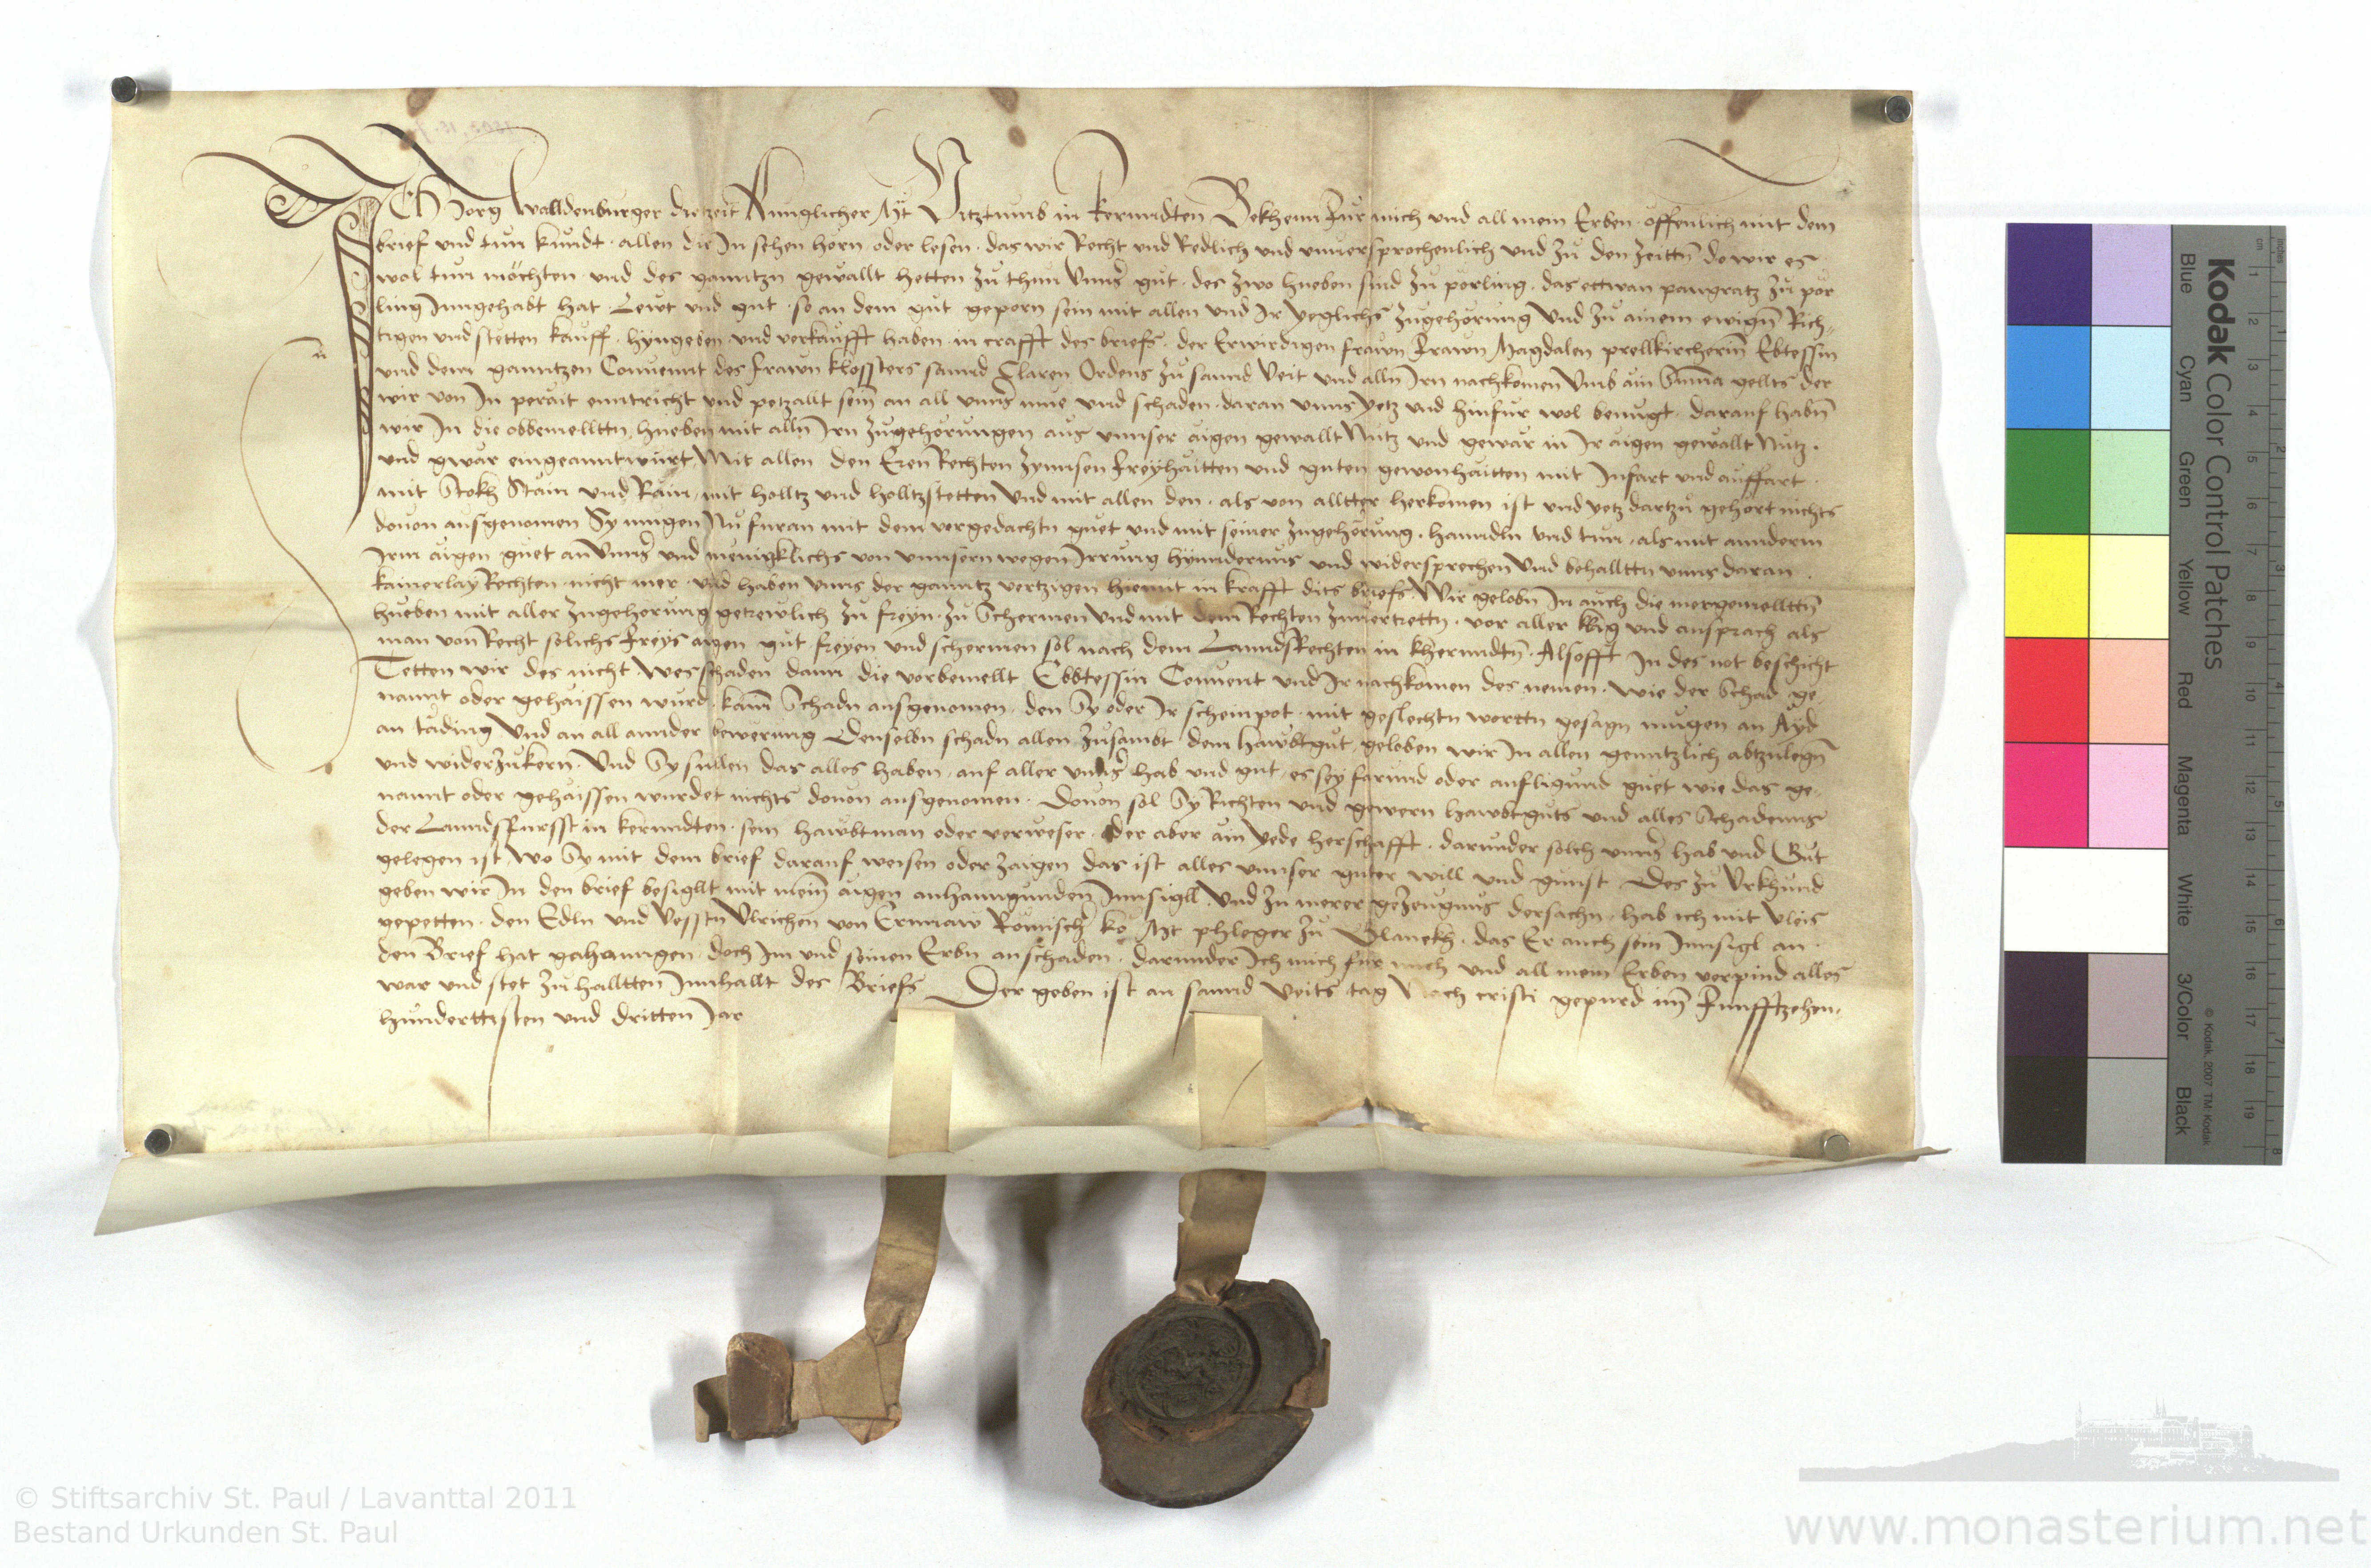 ICh Jorg Walldenburger dietzeit Kunglicher Mt Vitztumb in kerrndten Bekhenn Fur mich und all mein Erben offenlich mit dem
brief und tun kundt allen die In sehen horn oder lesen das wir Recht und Redlich und unversprochenlich und zu den zeittn do wir es
wol tun mochten und des ganntzn gewallt hetten zu thun Unns gut des zwo hueben sind zu porling das ettwan pangratz zu por
ling Inngehabt hat Lewt und gut so an dem gut geporn sein mit allen und Ir yeglichs zugehorung Und zu ainem ewign Rich
tigen und stetten kauff hyngeben und verkaufft haben in crafft des briefs der Erwirdigen frawn Frawn Magdalen prellkircherin Ebtessin
und dem ganntzen Convennt des frawn klossters sannd Claren Ordens zu sannd Veit und alln Irn nachkomen Umb ain Suma gellts der
wir von In perait enntricht und petzallt sein an all unns mue und schaden daran unns yetz und hinfur wol benugt darauf habn
wir In die obbemelltn hueben mit alln Irn zugehorungen aus unnser aigen gewallt Nutz und gewar in Ir aigen gewallt Nutz
und gwar eingeanntwurt Mit allen den Eren Rechten zynnsen Freyhaitten und guten gewonhaitten mit Infart und auffart
mit Stokh Stain und Rain mit holltz und holltzstetten Und mit allen den als von alltter herkomen ist und yetz dartzu gehort nichts
dovon ausgenomen Sy mugen Nu furan mit dem vorgedachtn guet und mit seiner zugehorung hanndln und tun als mit annderm
Irm aigen guet an Unns und menigklichs von unnsern wegen Irrung hynndernus und widersprechen Und behallttn unns daran
kainerlay Rechten nicht mer und haben Unns der ganntz vertzigen hiemit in krafft dits briefs Wir gelobn In auch die merge­melltn
hueben mit aller zugehorung getrewlich zu freyn zu Schermen Und mit dem Rechten zuvertrettn vor aller klag und ansprach als
man von Recht solichs freys aigen gut freyen und schermen sol nach dem Lannds Rechten in kherrndtn Alsofft In des not beschicht
Tetten wir des nicht Wes schaden dann die vorbemellt Ebbtessin Convent und Ir nachkomen des nemen wie der Schad ge
nannt oder gehaissen wurd kain Schadn ausgenomen den Sy oder Ir scheinpot mit geslechtn worttn gesagn mugen an Ayd
an tading Und an all annder bewerung Denselbn schadn allen zusambt dem hawbtgut geloben wir In allen genntzlich abtzulegn
und widerzukern Und Sy sullen das alles haben auf aller unns hab und gut es sey farund oder aufligund guet wie das ge
nannt oder gehaissen wurdet nichts dovon ausgenomen Dovon sol Sy Richten und gewern hawbtguts und alles Schadenns
der Lanndsfursst in kerrndten sein hawbtman oder verweser Oder aber ain yede herschafft darunder solch unns hab und Gut
gelegen ist Wo Sy mit dem brief darauf weisen oder zaigen das ist alles unnser guter will und gunst Des zu Urkhund
geben wir In den brief besigllt mit meinn aigen anhanngunden Innsigll Und zu merer gezeugnus dersachn hab ich mit vleis
gepetten den Edln und Vesstn Ulrichen von Ernnaw Romisch ko Mt phleger zu Glanekh das Er auch sein Innsigl an
den Brief hat gehanngen doch Im und seinen Erbn anschaden darunder Ich mich fur mich und all mein Erben verpind alles
war und stet zu halltten Innhallt des Briefs Der geben ist an sannd Veits tag Nach cristi gepurd im Funfftzehen
hunderttisten und dritten Jar
Kodak Color Control Patches
Blue Cyan Green Yellow Red Magenta White 3/Color Black
© Kodak, 2007 TM: Kodak
© Stiftsarchiv St. Paul / Lavanttal 2011
Bestand Urkunden St. Paul
www.monasterium.net